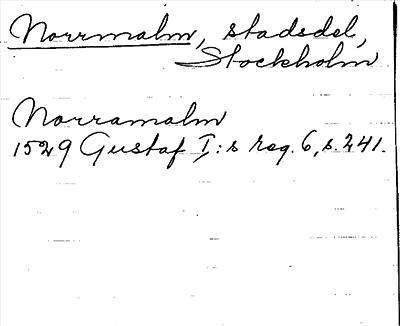 Norrmalm, stadsdel,
Stockholm
Norramalm
1529 Gustaf I:s reg. 6, s. 241.